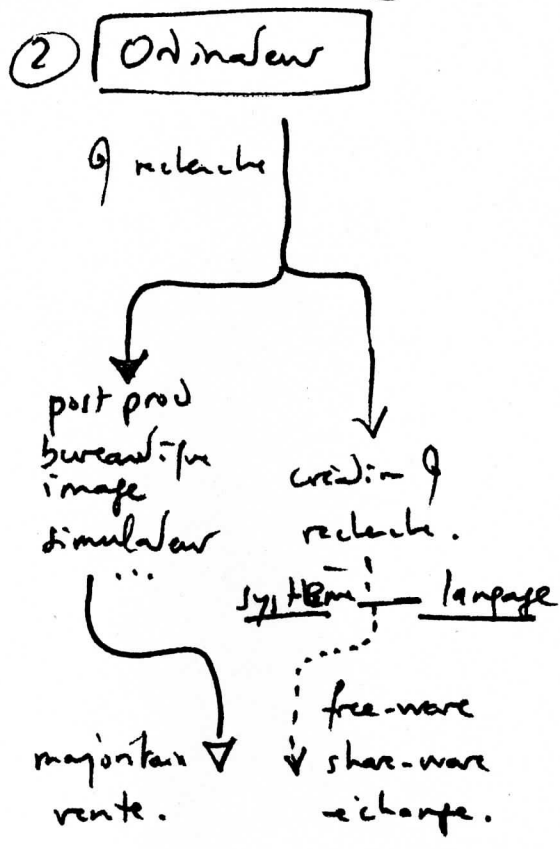 2 Ordinateur
recherche
post prod
bureautique
image
simulateur
...
création
recherche.
système — langage
majoritaire
vente.
free-ware
share-ware
échange.